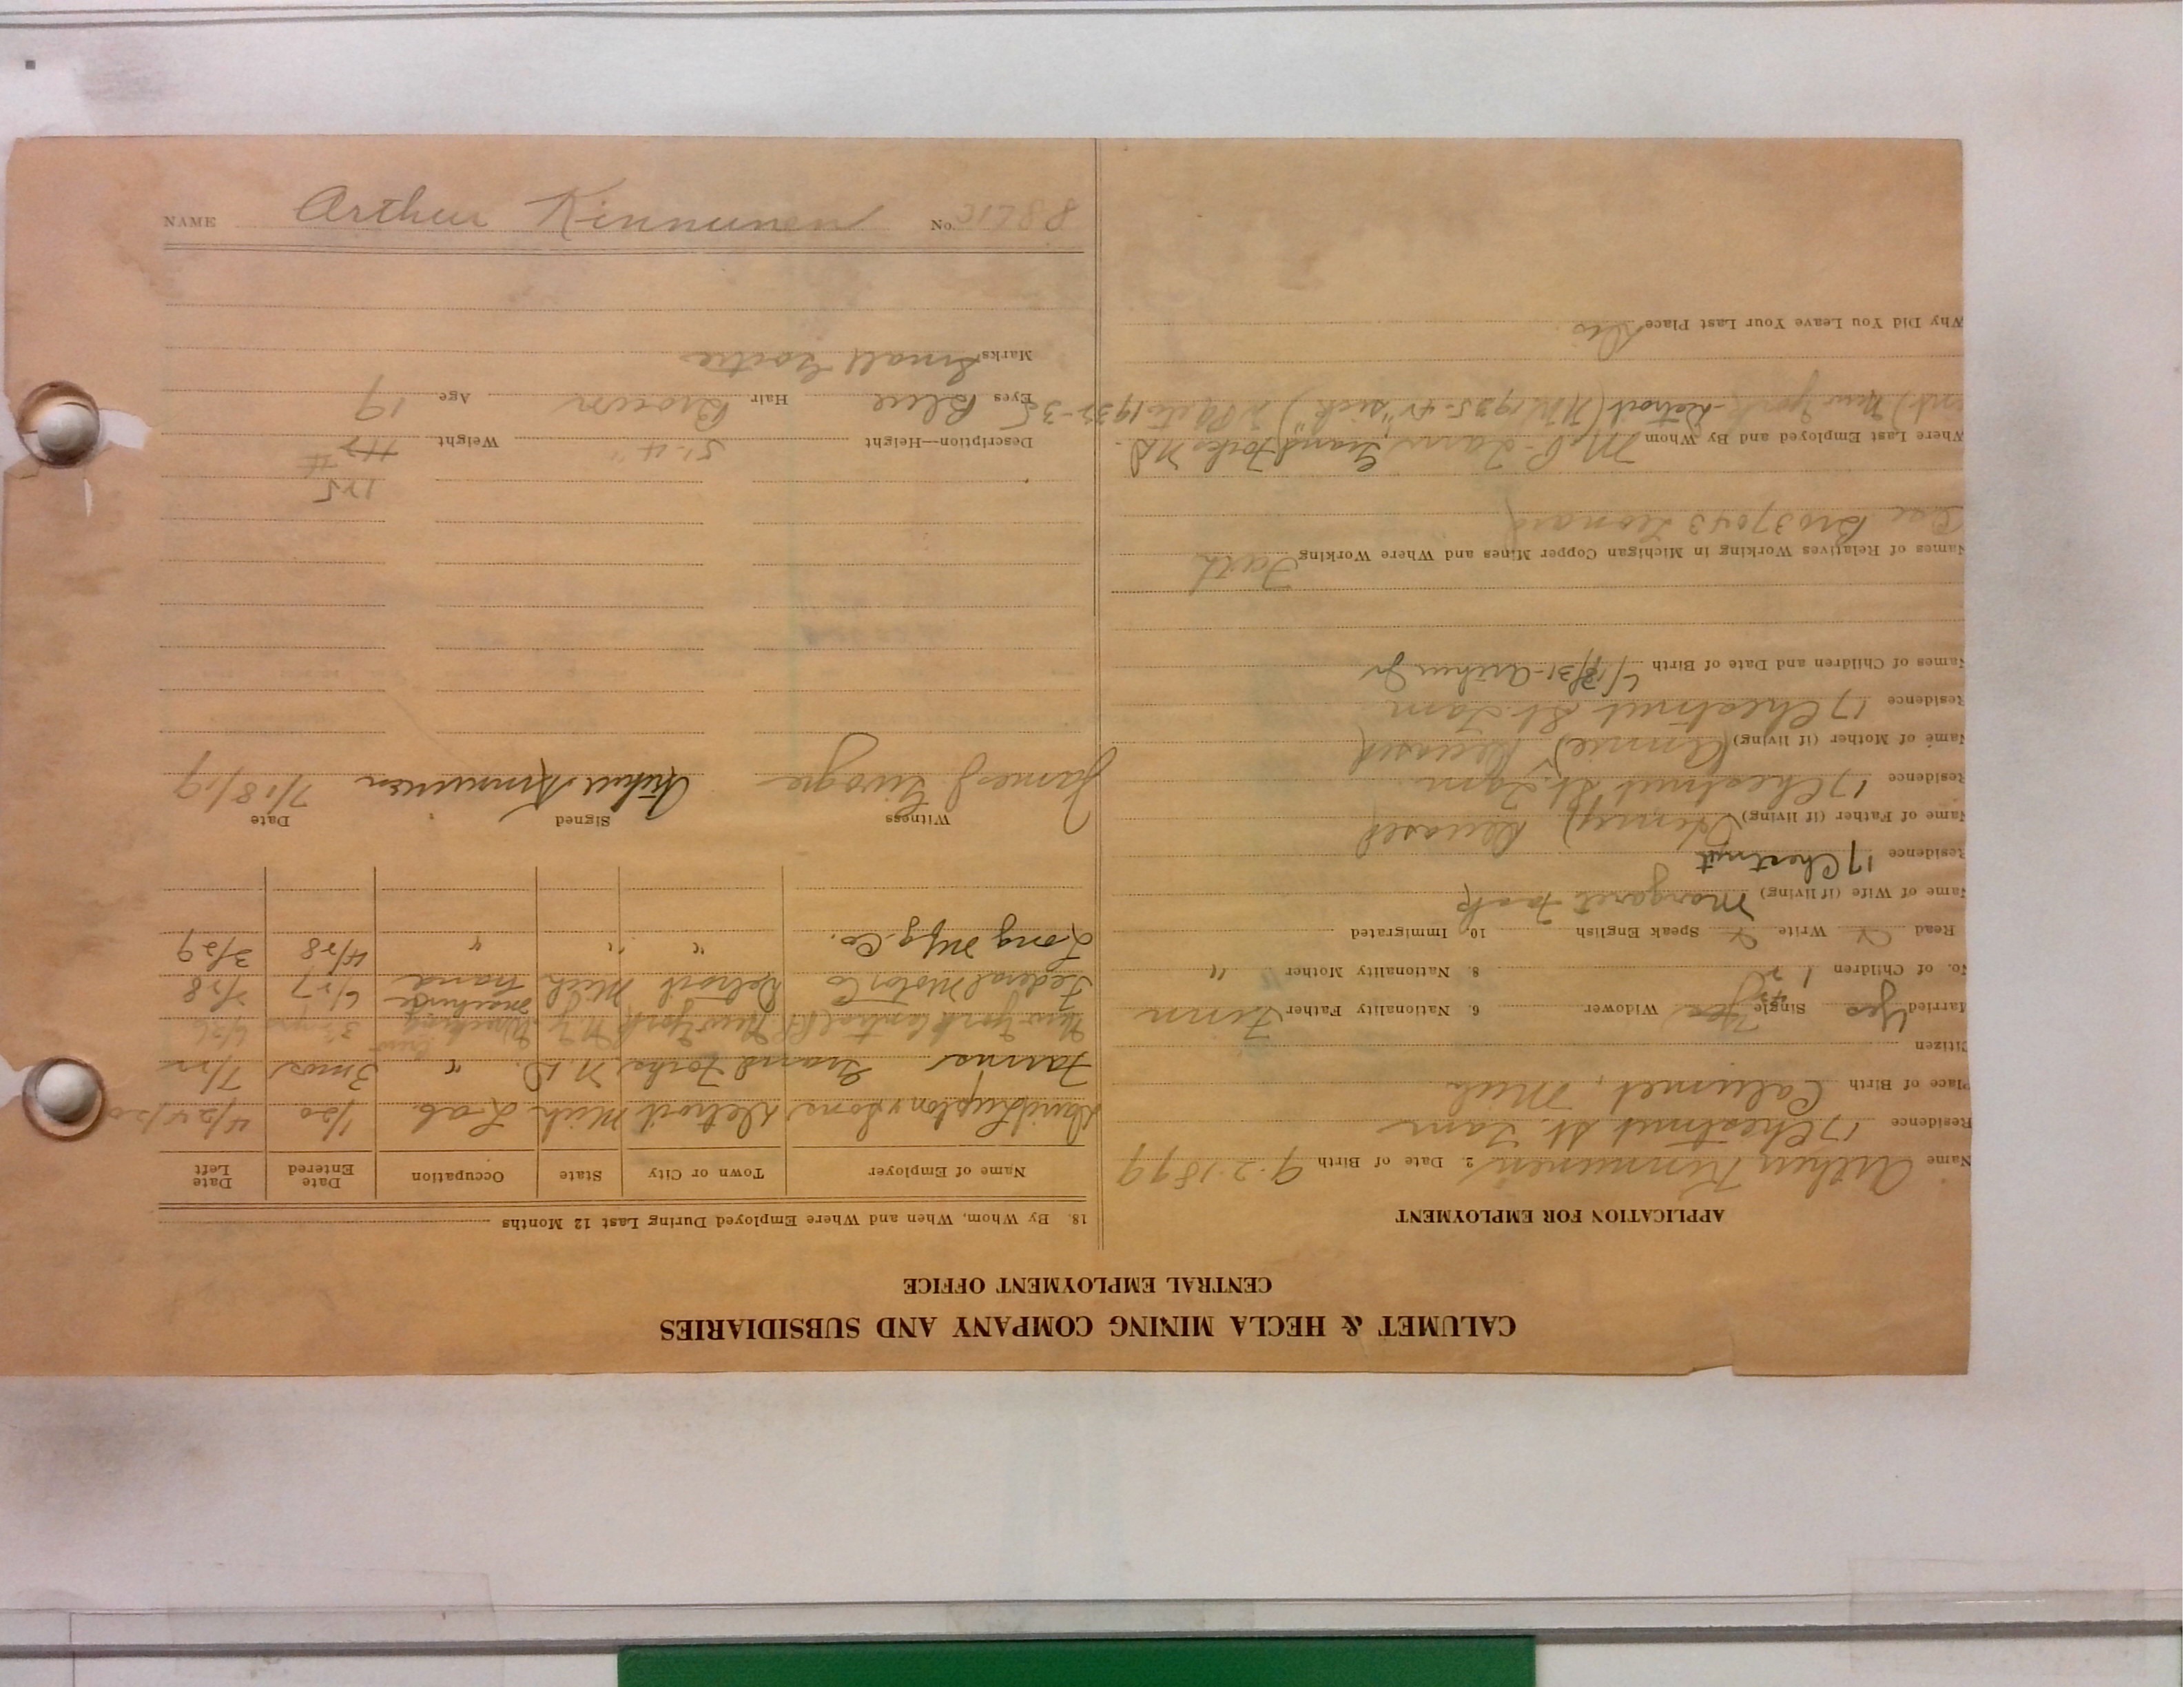 NAME Arthur Kinnunen No.
CALUMET & HECLA MINING COMPANY AND SUBSIDIARIES
CENTRAL EMPLOYMENT OFFICE
APPLICATION FOR EMPLOYMENT
Name Arthur Kinnunen 2. Date of Birth 9-2-1899
Residence 17 Chestnut St. Tam
Place of Birth Calumet, Mich
Citizen
Married Yes Single Widower 6. Nationality Father Finn
No. of Children 8. Nationality Mother "
Read Write Speak English 10. Immigrated
Name of Wife (if living) Margaret
Residence 17 Chestnut
Name of Father (if living) (Henry) Deceased
Residence 17 Chestnut St. Tam
Name of Mother (if living) (Annie) Deceased
Residence 17 Chestnut St. Tam
Names of Children and Date of Birth Arthur Jr
Names of Relatives Working in Michigan Copper Mines and Where Working Fath
Bro 37043 Leonard
Where Last Employed and By Whom Farms, Grand Forks N.D.
New York - Detroit
Why Did You Leave Your Last Place Dis
18. By Whom, When and Where Employed During Last 12 Months
Name of Employer Town or City State Occupation Date Entered Date Left
David Lupton Sons Detroit Mich Lab. 1/20 4/24/20
Farms Grand Forks N.D. " 3 mos 7/22
New York Central RR New York N.Y. Wrecking Crew 6/26
Federal Motor Co Detroit Mich machine hand 6/27 2/28
Long Mfg. Co. " " " 4/28 3/29
Witness Signed Date
James Arthur Kinnunen 7/18/19
125
Description—Height 5'-4" Weight
Eyes Blue Hair Brown Age 19
Marks Small Goitre